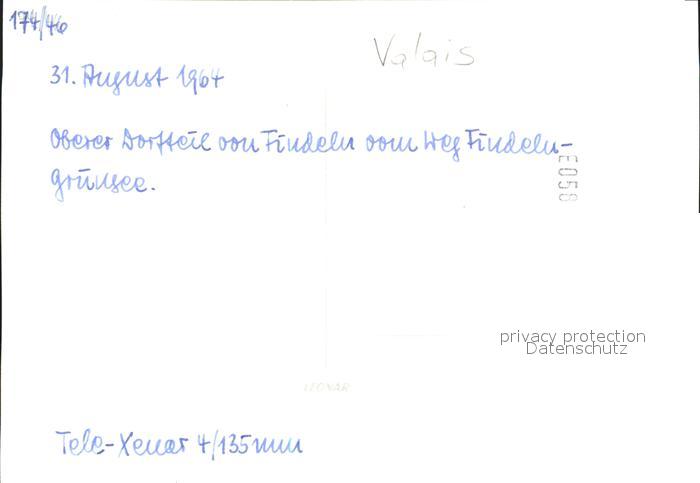 174/46
Valais
31. August 1964
Oberer Dorfteil von Findeln vom Weg Findeln-
Grünsee.
E058
privacy protection
Datenschutz
LEONAR
Tele-Xenar 4/135mm